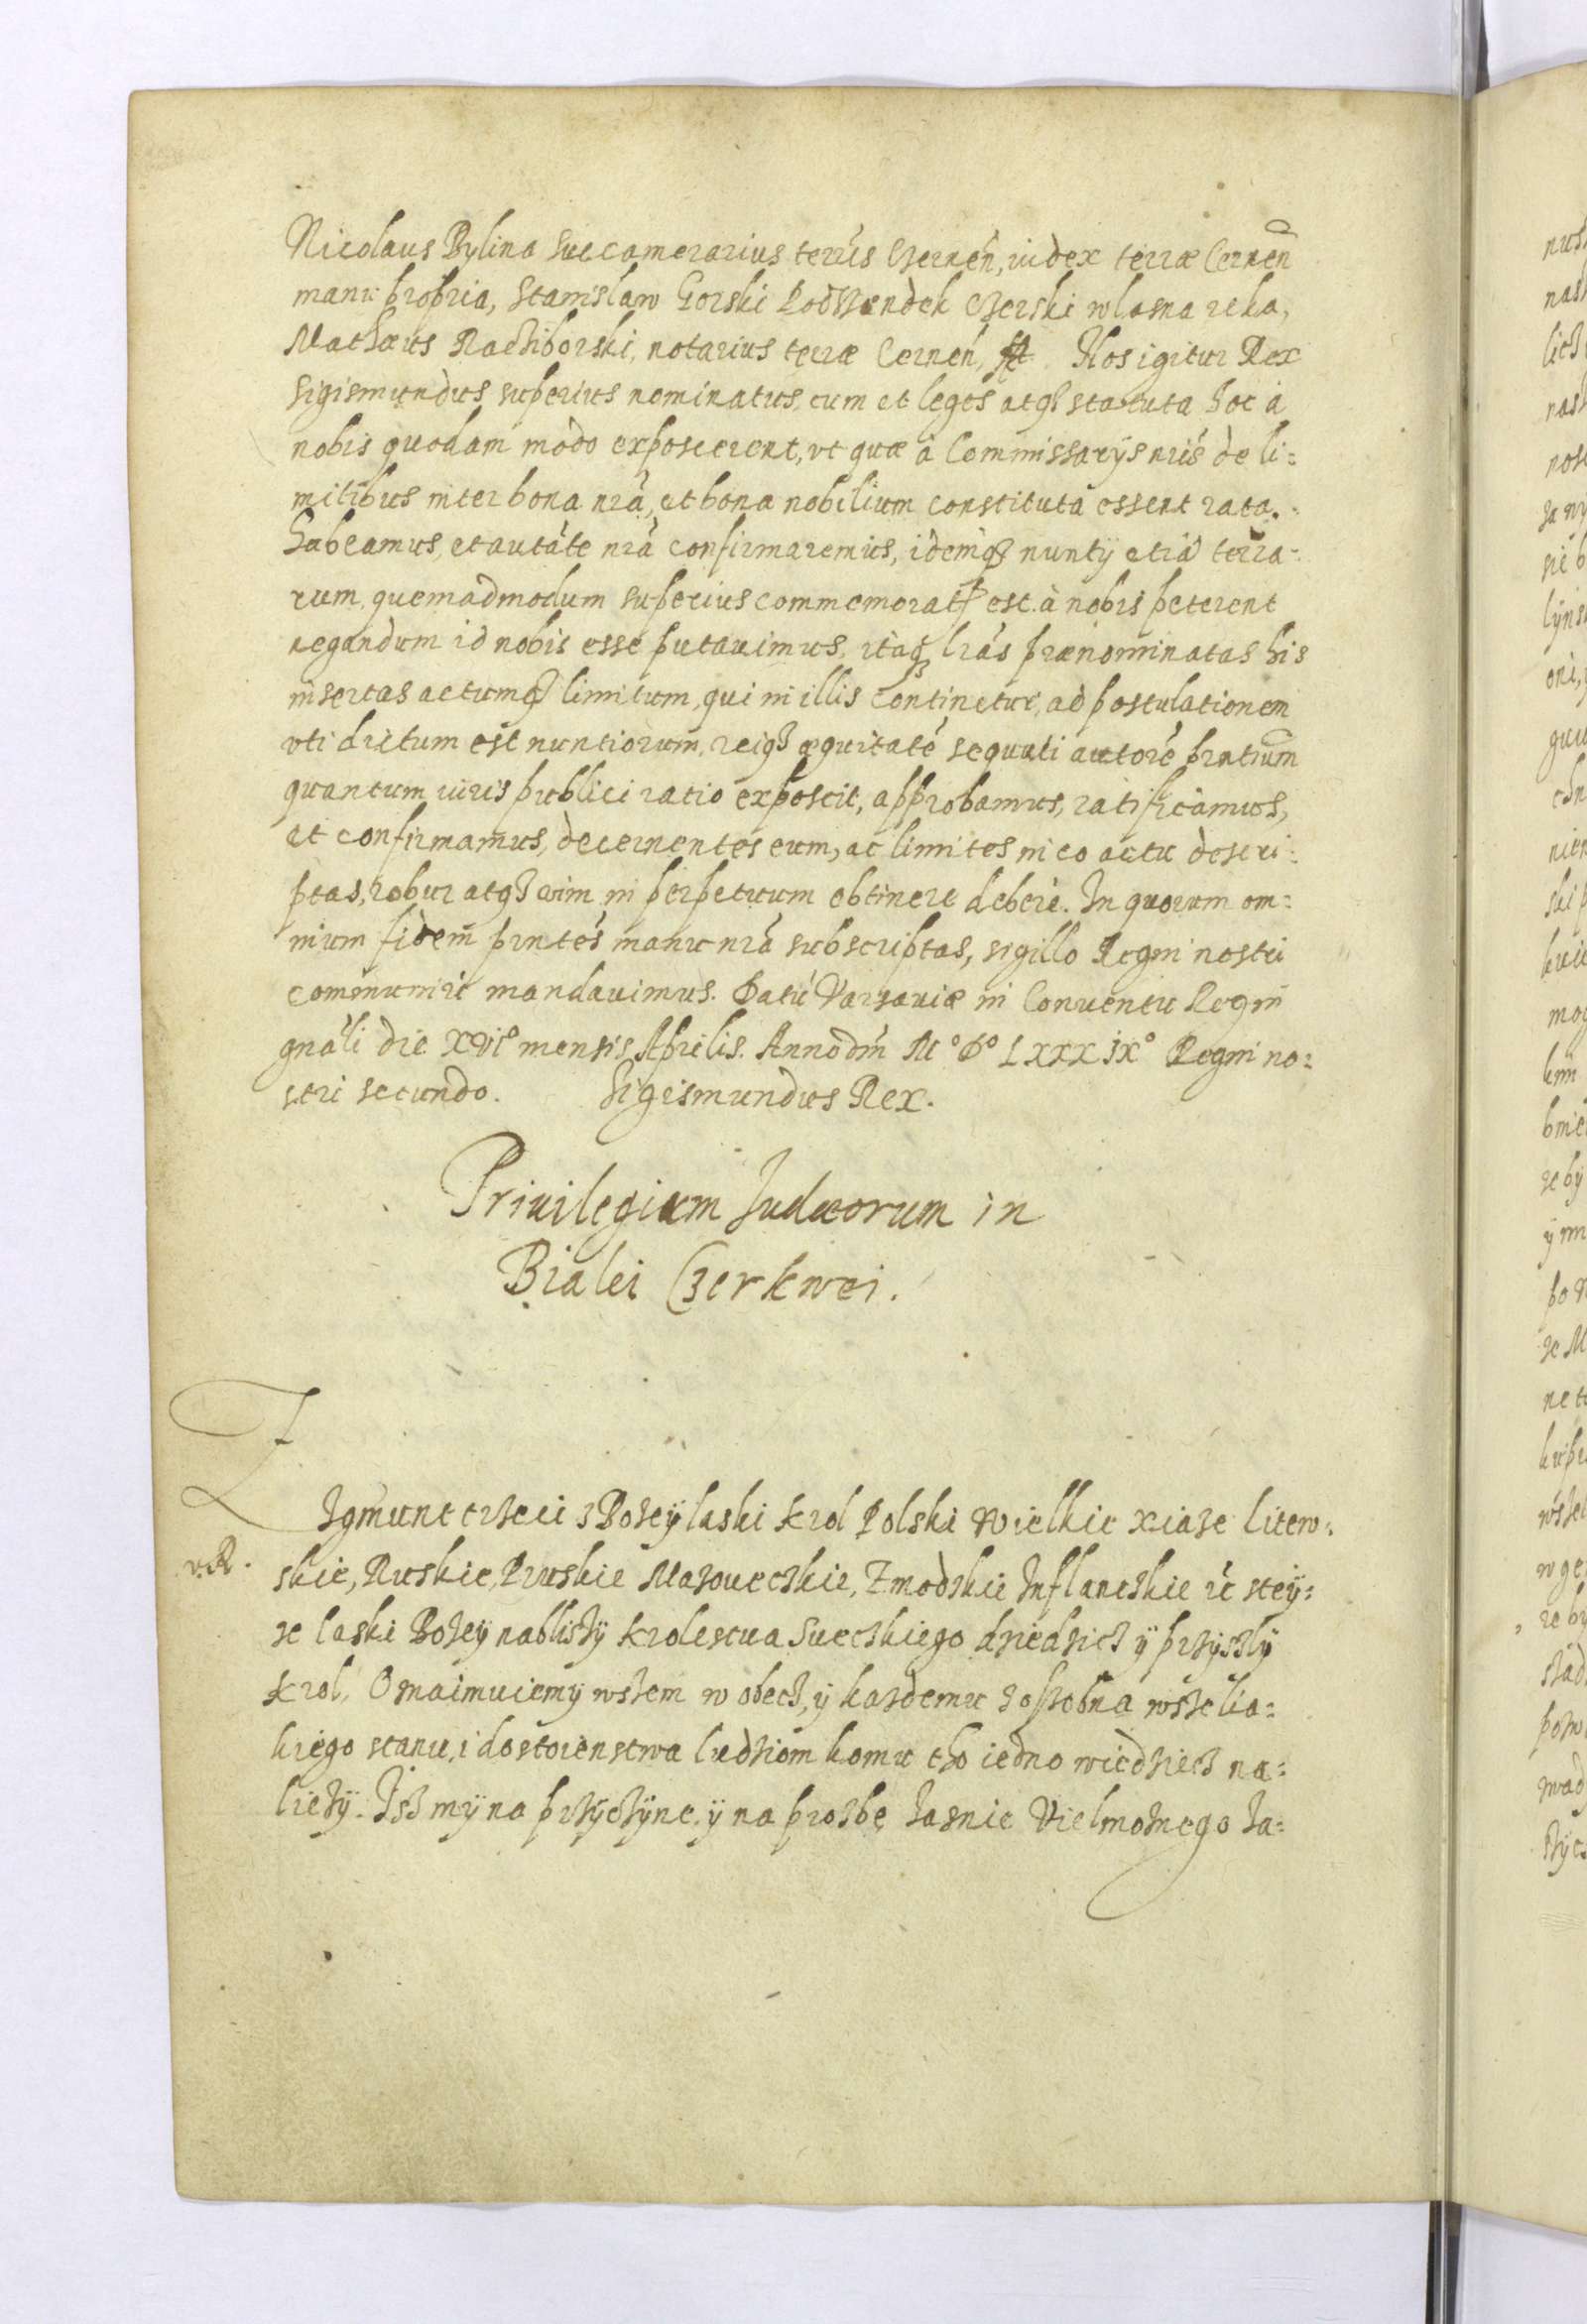 Nicolaus Bylina Succamerarius terrīs Czernēn, iudex terræ Cernēn
manu propria, Stanislaw Gorski Podssendek Czerski wlasna reka,
Mathæus Rachiborski, notarius terræ Cernēn, Nos igitur Rex
Sigismundus superius nominatus, cum et leges atqʒ statuta hoc à
nobis quodam modo exposcerent, vt quæ à Commissarÿs nrīs de li:
mitibus inter bona nrā, et bona nobilium constituta essent rata.
habeamus, et autāte nrā confirmaremus, idemqʒ nuntÿ etiā terra:
rum, quemadmodum superius commemoratū est. à nobis peterent
negandum id nobis esse putauimus, itaqʒ lrās prænominatas his
insertas actumqʒ limitum, qui in illis continetur, ad postulationem
vti dictum est nuntiorum, reiqʒ æquitatē sequuti autorē prntium
quantum iuris publici ratio exposcit, approbamus, ratificamus,
et confirmamus, decernentes eum, ac limites in eo actu descri:
ptas, robur atqʒ vim in perpetuum obtinere debere. In quorum om:
nium fidem prntēs manu nrā subscriptas, sigillo Regni nostri
communiri mandauimus. Datū Varsauiæ in Conuentu Regni
gnāli die XVIº mensis Aprilis. Anno dnī Mº Dº LXXXIXº Regni no:
stri secundo. Sigismundus Rex.
Priuilegium Iudæorum in
Bialei Czerkwei.
Zigmunt trzeci z Bozeÿ laski Krol Polski Wielkie Xiaze Litew:
v.R.
skie, Ruskie, Pruskie Mazoueczkie, Zmodzkie Inflanczkie ic steÿ:
ze laski Bozeÿ nablizszÿ Krolestua Sueczkiego dziedzicz ÿ przÿszlÿ
Krol, Oznaimuiemÿ wszem w obecz, ÿ kazdemu zoszobna wszelia:
kiego stanu, i dostoienstwa ludziom komu tho iedno wiedziecz na:
liezÿ. Isz mÿ na przÿczÿne, ÿ na prozbę Iasnie Vielmoznego Ia: